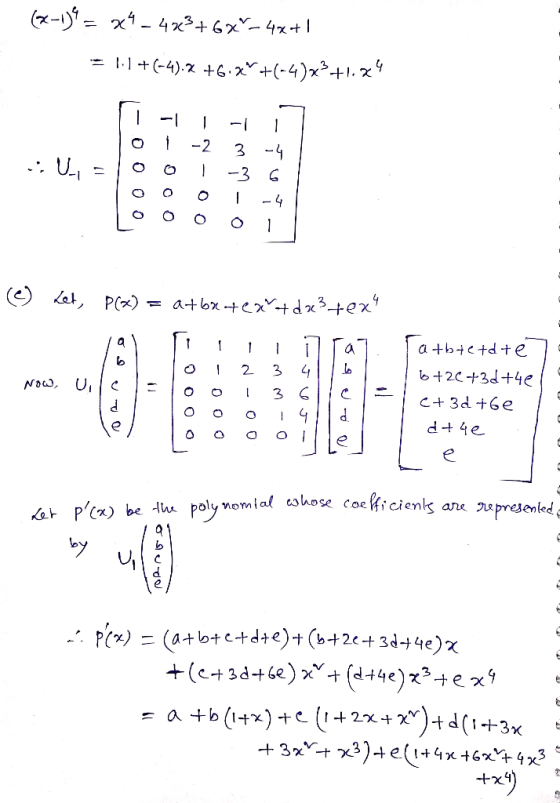 (x-1)⁴ = x⁴ - 4x³ + 6x² - 4x + 1
= 1.1 + (-4).x + 6.x² + (-4)x³ + 1.x⁴
∴ U₋₁ = [ 1 -1 1 -1 1
0 1 -2 3 -4
0 0 1 -3 6
0 0 0 1 -4
0 0 0 0 1 ]
(c) Let, P(x) = a+bx+cx²+dx³+ex⁴
Now, U₁ (a b c d e) = [ 1 1 1 1 1 ] [ a ] = [ a+b+c+d+e
0 1 2 3 4 b b+2c+3d+4e
0 0 1 3 6 c c+3d+6e
0 0 0 1 4 d d+4e
0 0 0 0 1 e e ]
Let p'(x) be the polynomial whose coefficients are represented
by U₁ (a b c d e)
∴ p'(x) = (a+b+c+d+e) + (b+2c+3d+4e)x
+ (c+3d+6e)x² + (d+4e)x³ + ex⁴
= a + b(1+x) + c(1+2x+x²) + d(1+3x
+ 3x² + x³) + e(1+4x+6x²+4x³
+x⁴)